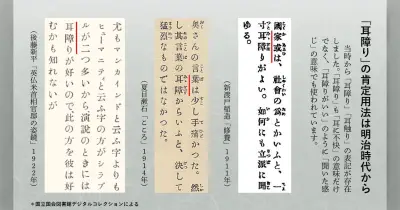 「耳障り」の肯定用法は明治時代から
当時から「耳障り」「耳触り」の表記が存在
しました。「耳障り」も「耳に不快」の意味だけ
でなく、「耳障りがいい」のように「聞いた感
じ」の意味でも使われています。
國家或は、社會の爲とかいふと、一
寸耳障りがよい。如何にも立派に聞
ゆる。
(新渡戸稲造『修養』1911年)
奥さんの言葉は少し手痛かつた。然
し其言葉の耳障からいふと、決して
猛烈なものではなかつた。
(夏目漱石『こころ』1914年)
尤もマンカインドと云ふ字よりも
ヒューマニティと云ふ字の方がシラブ
ルが二つ多いから演説のときには
耳障りが好いので此の方を彼は好
むかも知れないが
(後藤新平『英仏米首相官邸の姿鏡』1922年)
※国立国会図書館デジタルコレクションによる